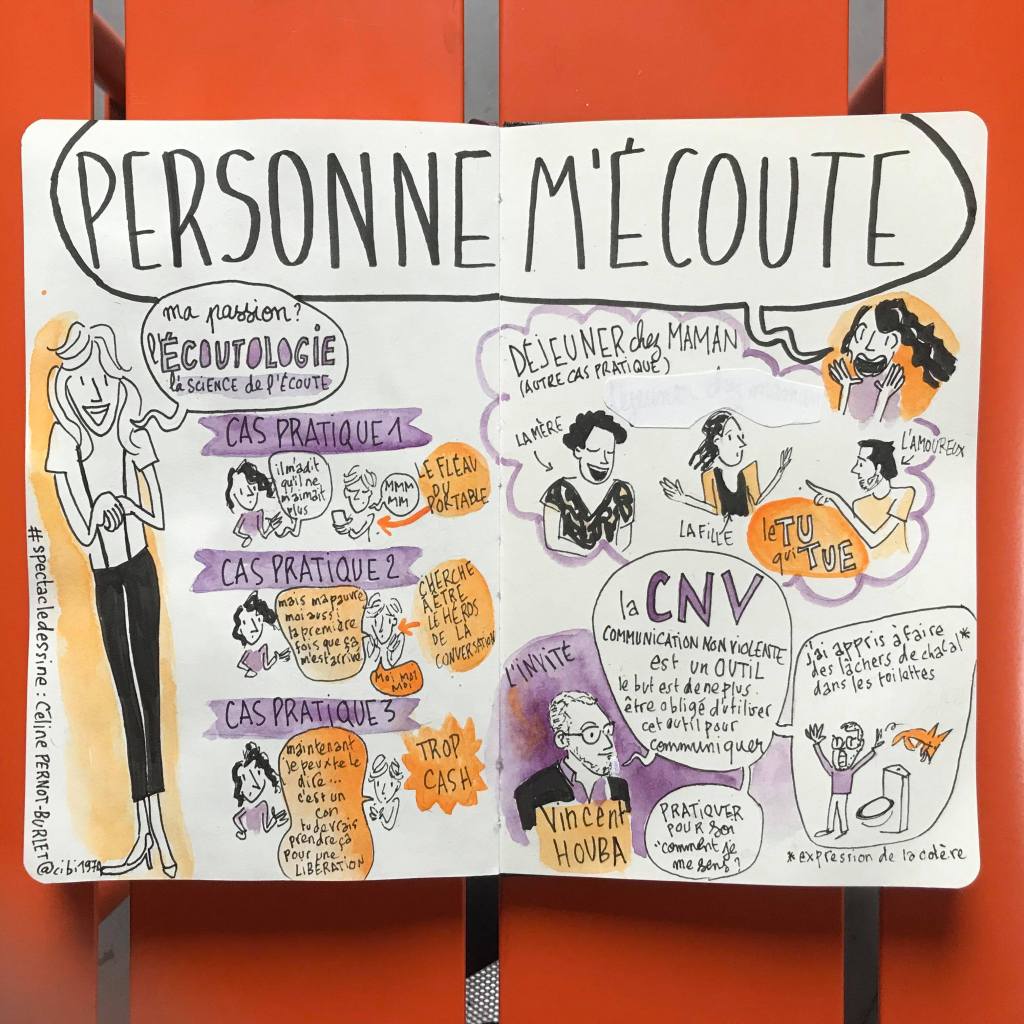 PERSONNE M'ÉCOUTE
ma passion?
l'ÉCOUTOLOGIE
la SCIENCE de l'ÉCOUTE
CAS PRATIQUE 1
il m'a dit
qu'il ne
m'aimait
plus
MMM
MM
LE FLÉAU
DU
PORTABLE
CAS PRATIQUE 2
mais ma pauvre
moi aussi
la première
fois que ça
m'est arrivé
MOI MOI
MOI
CHERCHE
À ÊTRE
LE HÉROS
DE LA
CONVERSATION
CAS PRATIQUE 3
maintenant
je peux te le
dire...
c'est un
con
tu devrais
prendre ça
pour une
LIBÉRATION
TROP
CASH
#spectacledessine : Céline PERNOT-BURLET
@cibi1970
DÉJEUNER chez MAMAN
(AUTRE CAS PRATIQUE)
LA MÈRE
LA FILLE
L'AMOUREUX
le TU
qui TUE
la CNV
COMMUNICATION NON VIOLENTE
EST UN OUTIL
le but est de ne plus
être obligé d'utiliser
cet outil pour
communiquer
L'INVITÉ
Vincent
HOUBA
PRATIQUER
POUR SOI
"comment je
me sens?
j'ai appris à faire
des lâchers de chacal*
dans les toilettes
*expression de la colère